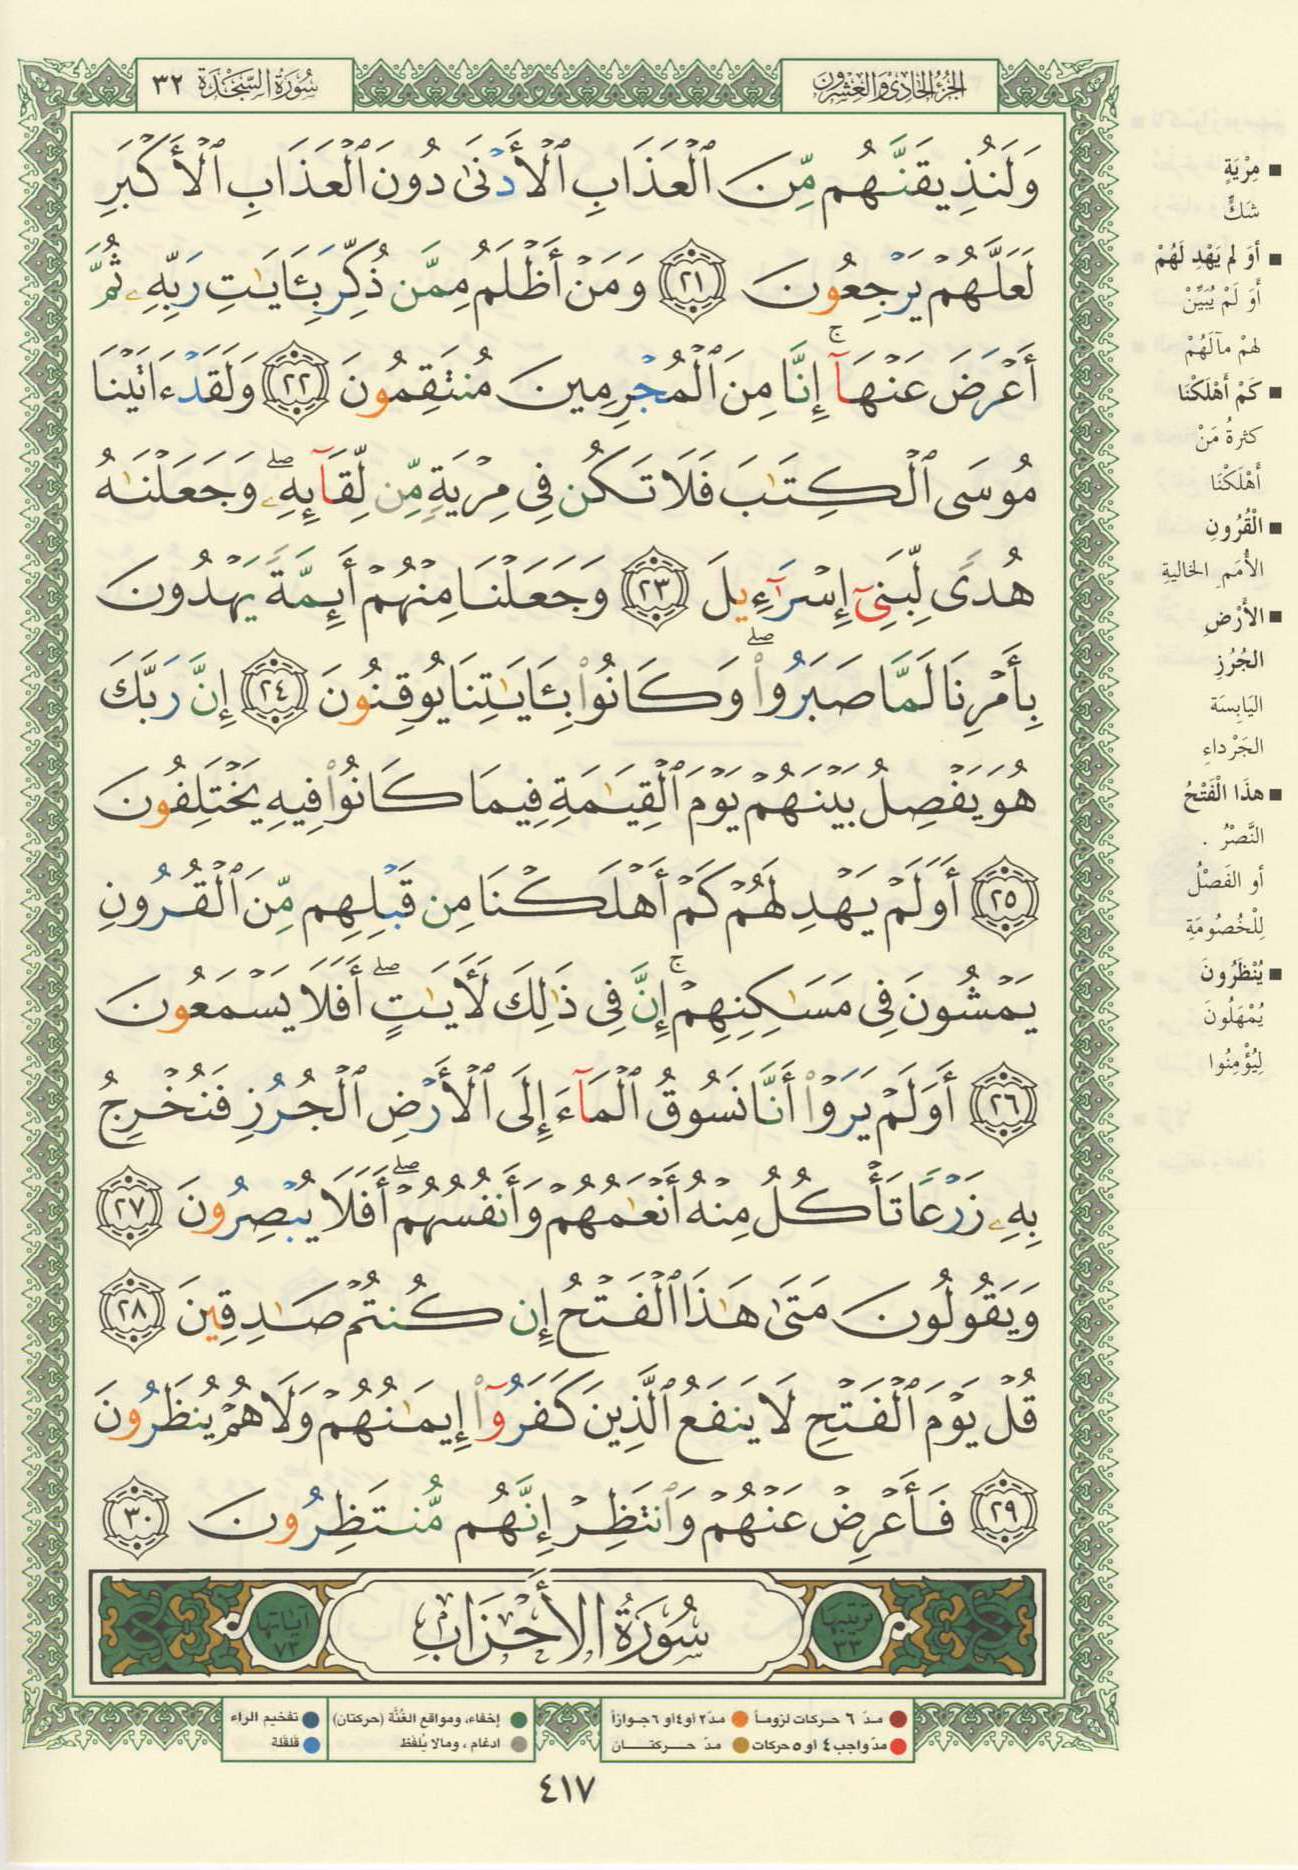 الجزء الحادي والعشرون
سورة السجدة ٣٢
وَلَنُذِيقَنَّهُم مِّنَ ٱلْعَذَابِ ٱلْأَدْنَىٰ دُونَ ٱلْعَذَابِ ٱلْأَكْبَرِ
لَعَلَّهُمْ يَرْجِعُونَ ٢١ وَمَنْ أَظْلَمُ مِمَّن ذُكِّرَ بِـَٔايَـٰتِ رَبِّهِۦ ثُمَّ
أَعْرَضَ عَنْهَآ ۚ إِنَّا مِنَ ٱلْمُجْرِمِينَ مُنتَقِمُونَ ٢٢ وَلَقَدْ ءَاتَيْنَا
مُوسَى ٱلْكِتَـٰبَ فَلَا تَكُن فِى مِرْيَةٍ مِّن لِّقَآئِهِۦ ۖ وَجَعَلْنَـٰهُ
هُدًى لِّبَنِىٓ إِسْرَٰٓءِيلَ ٢٣ وَجَعَلْنَا مِنْهُمْ أَئِمَّةً يَهْدُونَ
بِأَمْرِنَا لَمَّا صَبَرُوا۟ ۖ وَكَانُوا۟ بِـَٔايَـٰتِنَا يُوقِنُونَ ٢٤ إِنَّ رَبَّكَ
هُوَ يَفْصِلُ بَيْنَهُمْ يَوْمَ ٱلْقِيَـٰمَةِ فِيمَا كَانُوا۟ فِيهِ يَخْتَلِفُونَ
٢٥ أَوَلَمْ يَهْدِ لَهُمْ كَمْ أَهْلَكْنَا مِن قَبْلِهِم مِّنَ ٱلْقُرُونِ
يَمْشُونَ فِى مَسَـٰكِنِهِمْ ۚ إِنَّ فِى ذَٰلِكَ لَـَٔايَـٰتٍ ۖ أَفَلَا يَسْمَعُونَ
٢٦ أَوَلَمْ يَرَوْا۟ أَنَّا نَسُوقُ ٱلْمَآءَ إِلَى ٱلْأَرْضِ ٱلْجُرُزِ فَنُخْرِجُ
بِهِۦ زَرْعًا تَأْكُلُ مِنْهُ أَنْعَـٰمُهُمْ وَأَنفُسُهُمْ ۖ أَفَلَا يُبْصِرُونَ ٢٧
وَيَقُولُونَ مَتَىٰ هَـٰذَا ٱلْفَتْحُ إِن كُنتُمْ صَـٰدِقِينَ ٢٨
قُلْ يَوْمَ ٱلْفَتْحِ لَا يَنفَعُ ٱلَّذِينَ كَفَرُوٓا۟ إِيمَـٰنُهُمْ وَلَا هُمْ يُنظَرُونَ
٢٩ فَأَعْرِضْ عَنْهُمْ وَٱنتَظِرْ إِنَّهُم مُّنتَظِرُونَ ٣٠
ترتيبها ٣٣
سُورَةُ الأَحْزَابِ
آياتها ٧٣
■ مِرْيَةٍ
شَكٍّ
■ أوَ لم يَهْدِ لَهُمْ
أَوَ لَمْ يُبَيِّنْ
لهمْ مآلَهُمْ
■ كَمْ أَهْلَكْنَا
كثرةُ مَنْ
أَهْلَكْنَا
■ الْقُرُونِ
الأُمَمِ الخاليةِ
■ الأَرْضِ
الجُرُزِ
اليَابِسَة
الجَرْداءِ
■ هذَا الْفَتْحُ
النَّصْرُ .
أو الفَصْلُ
لِلْخُصُومَةِ
■ يُنْظَرُونَ
يُمْهَلُونَ
لِيُؤْمِنُوا
مدّ ٦ حركات لزوماً مدّ ٢ أو ٤ أو ٦ جوازاً
مدّ واجب ٤ أو ٥ حركات مدّ حركتان
إخفاء، ومواقع الغُنَّة (حركتان) تفخيم الراء
ادغام ، ومالا يُلفَظ قلقلة
٤١٧